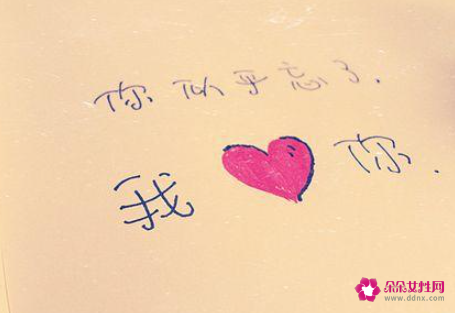 你似乎忘了.
我 你.
朵朵女性网
www.ddnx.com